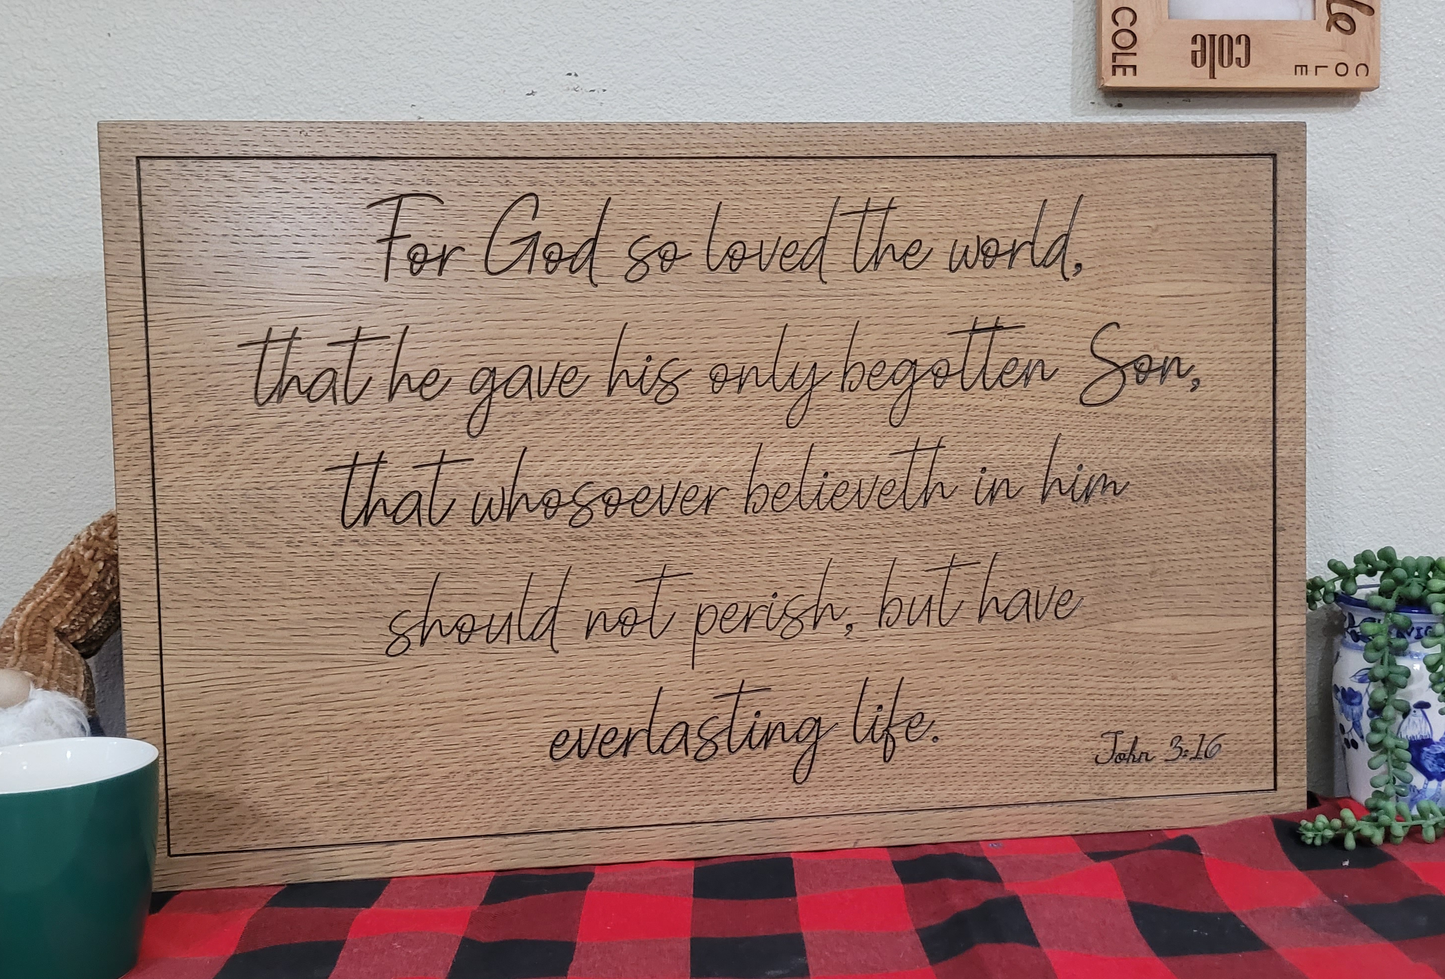 COLE
cole
le
COLE
For God so loved the world,
that he gave his only begotten Son,
that whosoever believeth in him
should not perish, but have
everlasting life.
John 3:16